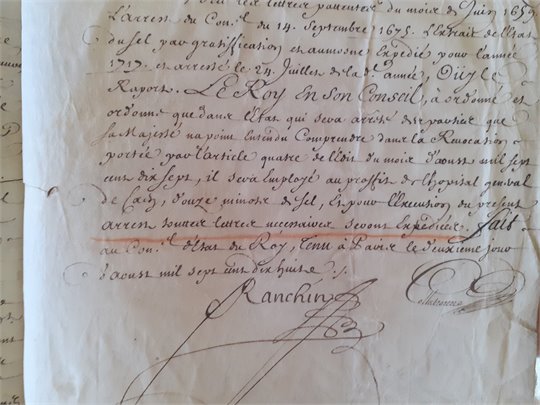 lettres patentes du mois de Juin 1659
L'arrest du Con.el du 14. Septembre 1675. L'Extrait de l'Estat
du sel, par gratification et aumosne Expedié pour l'année
1717. et arresté le 24. Juillet de lad.e année, Oüy le
Raport. Le Roy En son Conseil, a ordonné et
ordonne que dans l'Estat qui sera arresté des
que
sa Majesté na point Entendu Comprendre dans la Revocation
portée par l'article quatre de l'Edit du mois d'aoust mil sept
cent dix sept, il sera Employé au proffit de l'hopital general
de Caen, douze minots de sel, Et pour l'Execution du present
arrest toutes lettres necessaires seront Expediées. Fait
au Con.el d'Estat du Roy, tenu à Paris le deuxieme jour
d'aoust mil sept cent dix huit ./.
Ranchin